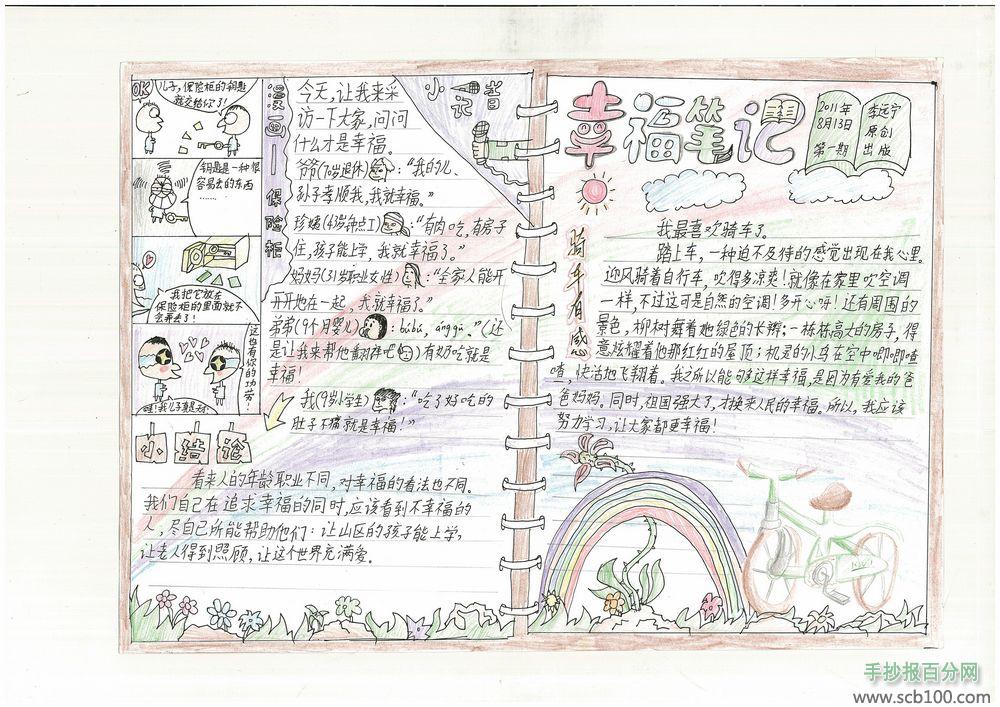 OK
儿子,保险柜的钥匙
就交给你了!
钥匙是一种很
容易丢的东西
……
我把它放在
保险柜的里面就不
会弄丢了!
这也有你的功劳!
哇!我儿子真是天才
漫画——保险柜
小记者
今天,让我来采
访一下大家,问问
什么才是幸福。
爷爷(70岁退休)：“我的儿、
孙子孝顺我,我就幸福。”
珍姨(43岁钟点工)：“有肉吃,有房子
住,孩子能上学,我就幸福了。”
妈妈(31岁职业女性)：“全家人能开
开开地在一起,我就幸福了。”
弟弟(9个月婴儿)：“búbú,ánggì、”(还
是让我来帮他翻译吧)有奶吃就是
幸福!
我(9岁小学生)：“吃了好吃的
肚子不痛就是幸福!”
小结论
看来人的年龄职业不同,对幸福的看法也不同。
我们自己在追求幸福的同时,应该看到不幸福的
人,尽自己所能帮助他们：让山区的孩子能上学,
让老人得到照顾,让这个世界充满爱。
幸福笔记
2011年
8月13日
第一期
李远宁
原创
出版
骑车有感
我最喜欢骑车了。
踏上车,一种迫不及待的感觉出现在我心里。
迎风骑着自行车,吹得多凉爽!就像在家里吹空调
一样,不过这可是自然的空调!多开心呀!还有周围的
景色,柳树舞着她绿色的长辫;一栋栋高大的房子,得
意炫耀着他那红红的屋顶;机灵的小鸟在空中唧唧喳
喳,快活地飞翔着。我之所以能够这样幸福,是因为有爱我的爸
爸妈妈。同时,祖国强大了,才换来人民的幸福。所以,我应该
努力学习,让大家都更幸福!
手抄报百分网
www.scb100.com